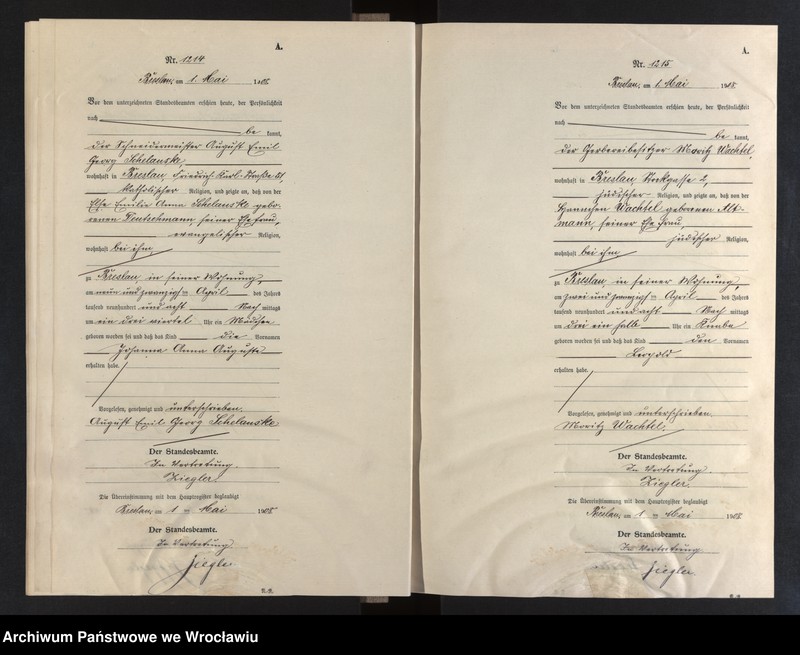 A.
Nr. 1214
Breslau, am 1. Mai 1908.
Vor dem unterzeichneten Standesbeamten erschien heute, der Persönlichkeit
nach
be kannt,
der Schneidermeister August Emil
Georg Schelanske,
wohnhaft in Breslau Friedrich-Karl-Straße 21,
katholischer Religion, und zeigte an, daß von der
Else Emilie Anna Schelanske gebo-
renen Deutschmann, seiner Ehefrau,
evangelischer Religion,
wohnhaft bei ihm,
zu Breslau in seiner Wohnung,
am neun und zwanzigsten April des Jahres
tausend neunhundert und acht Nach mittags
um ein drei viertel Uhr ein Mädchen
geboren worden sei und daß das Kind die Vornamen
Johanna Anna Auguste
erhalten habe.
Vorgelesen, genehmigt und unterschrieben.
August Emil Georg Schelanske
Der Standesbeamte.
In Vertretung.
Ziegler.
Die Übereinstimmung mit dem Hauptregister beglaubigt
Breslau, am 1. ten Mai 1908.
Der Standesbeamte.
In Vertretung
Ziegler
A.
Nr. 1215
Breslau, am 1. Mai 1908.
Vor dem unterzeichneten Standesbeamten erschien heute, der Persönlichkeit
nach
be kannt,
der Gerbereibesitzer Moritz Wachtel,
wohnhaft in Breslau Stockgasse 2,
jüdischer Religion, und zeigte an, daß von der
Hannchen Wachtel geborenen Alt-
mann, seiner Ehefrau,
jüdischer Religion,
wohnhaft bei ihm
zu Breslau in seiner Wohnung,
am zwei und zwanzigsten April des Jahres
tausend neunhundert und acht Nach mittags
um drei ein halb Uhr ein Knabe
geboren worden sei und daß das Kind den Vornamen
Leopold
erhalten habe.
Vorgelesen, genehmigt und unterschrieben.
Moritz Wachtel.
Der Standesbeamte.
In Vertretung
Ziegler.
Die Übereinstimmung mit dem Hauptregister beglaubigt
Breslau, am 1. ten Mai 1908.
Der Standesbeamte.
In Vertretung
Ziegler
Archiwum Państwowe we Wrocławiu